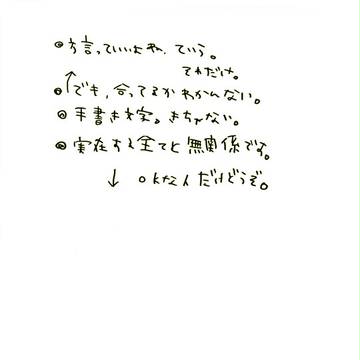 ◎方言っていいよね、ていう。
それだけ。
◎↑でも、合ってるかわかんない。
◎手書き文字。きちゃない。
◎実在する全てと無関係です。
↓ okな人だけどうぞ。